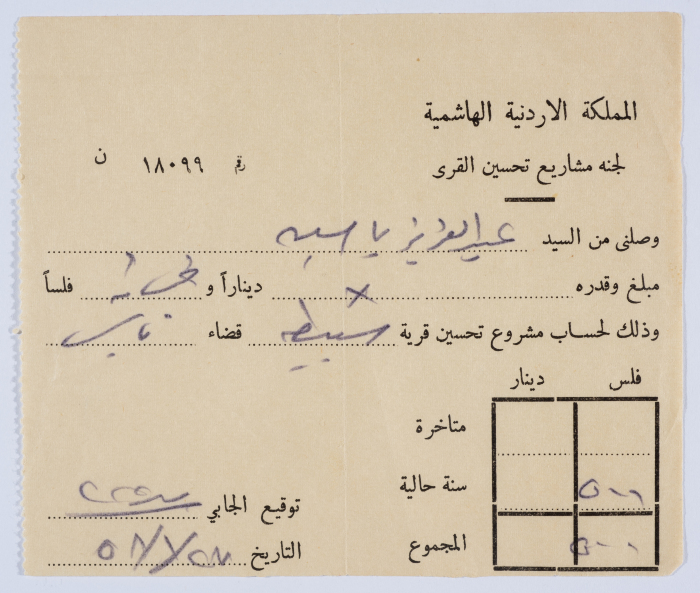 المملكة الاردنية الهاشمية
لجنه مشاريع تحسين القرى
رقم ١٨٠٩٩ ن
وصلنى من السيد عبد العزيز ياسين
مبلغ وقدره × ديناراً و خمسماية فلساً
وذلك لحساب مشروع تحسين قرية سبسطيه قضاء نابلس
فلس دينار
متاخرة
سنة حالية ٥٠٠
المجموع ٥٠٠
توقيع الجابي
التاريخ